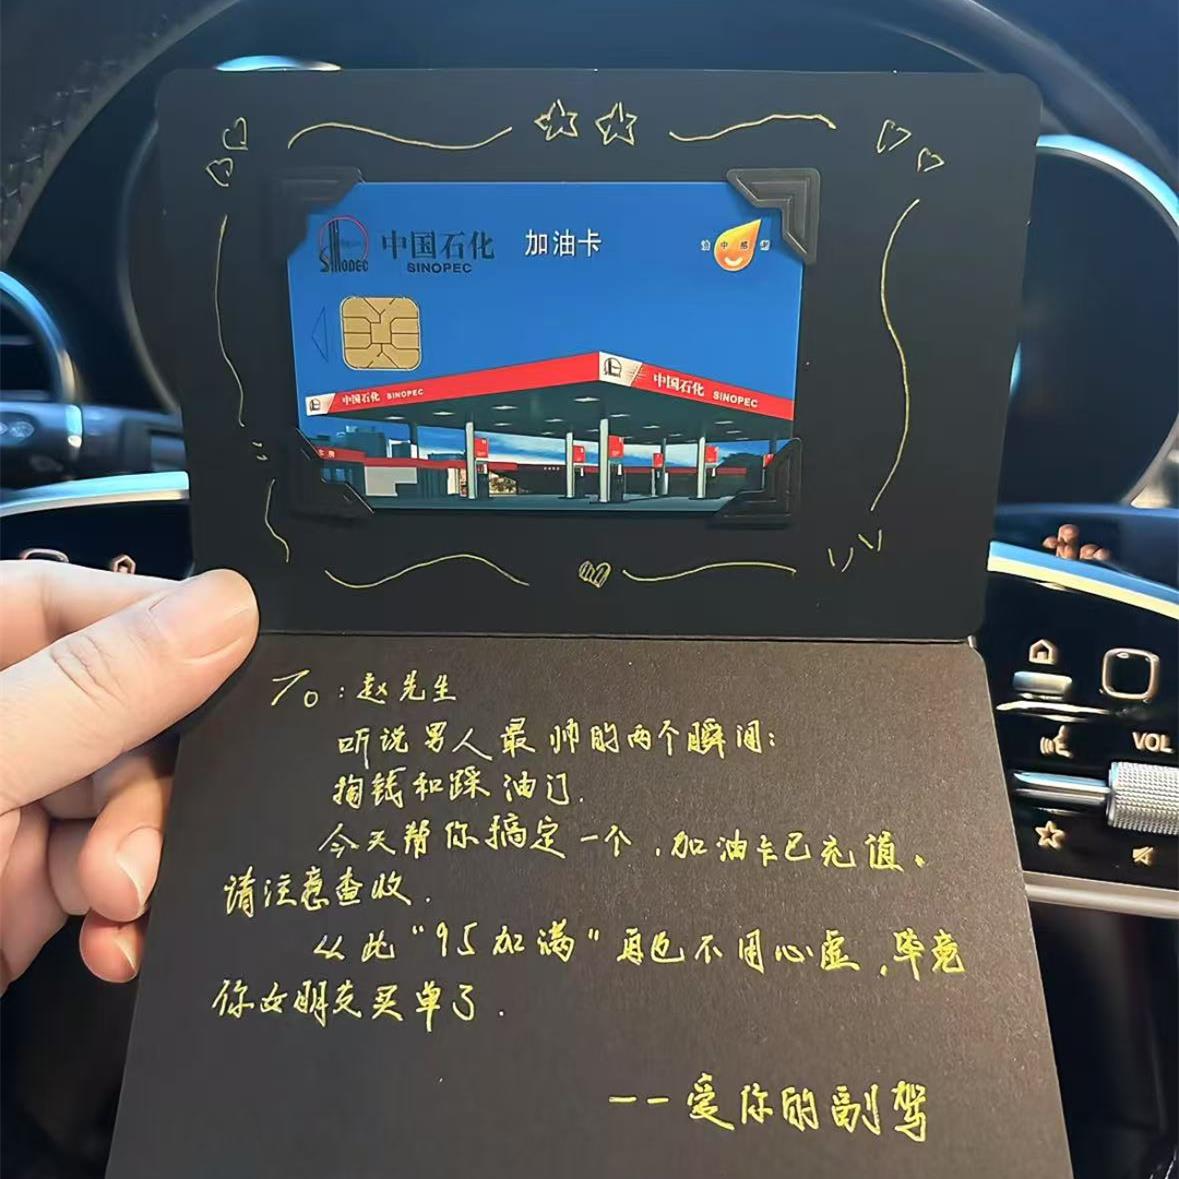 中国石化
SINOPEC
加油卡
SINOPEC
中国石化 SINOPEC
中国石化 SINOPEC
To:赵先生
听说男人最帅的两个瞬间:
掏钱和踩油门.
今天帮你搞定一个,加油卡已充值、
请注意查收.
从此“95加满”再也不用心虚,毕竟
你女朋友买单了.
--爱你的副驾
VOL